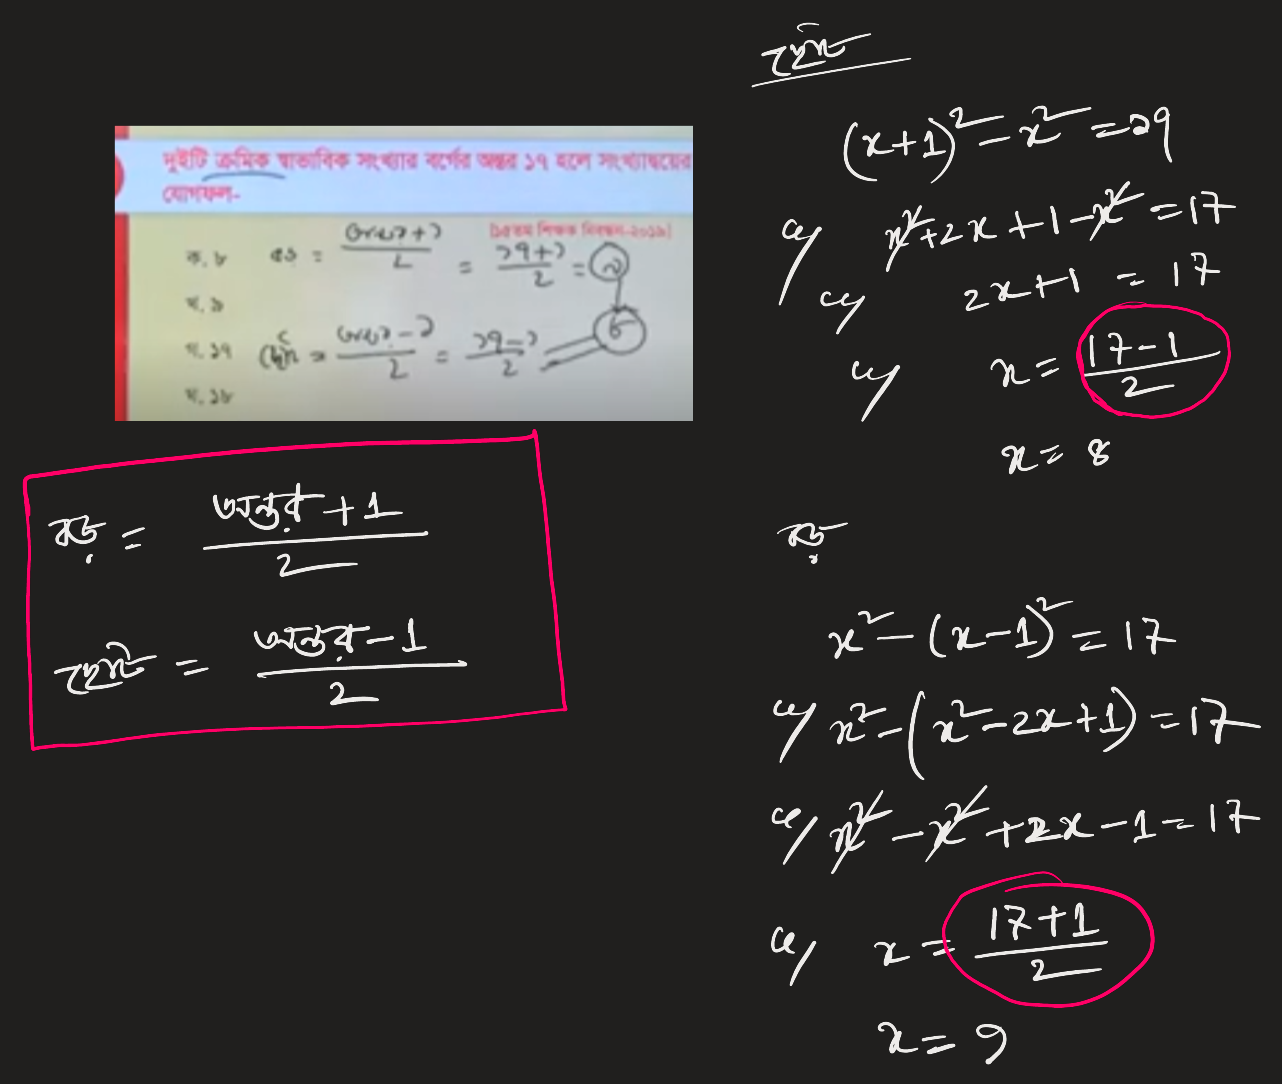 দুইটি ক্রমিক স্বাভাবিক সংখ্যার বর্গের অন্তর ১৭ হলে সংখ্যাদ্বয়ের
যোগফল-
[১৫তম শিক্ষক নিবন্ধন-২০১৯]
ক. ৮
খ. ৯
গ. ১৭
ঘ. ১৮
বড় = অন্তর+১/২ = ১৭+১/২ = ৯
ছোট = অন্তর-১/২ = ১৭-১/২ = ৮
বড় = অন্তর + 1 / 2
ছোট = অন্তর - 1 / 2
ছোট
(x+1)² - x² = ১৭
বা, x² + 2x + 1 - x² = 17
বা, 2x+1 = 17
বা, x = 17-1 / 2
x = 8
বড়
x² - (x-1)² = 17
বা, x² - (x² - 2x + 1) = 17
বা, x² - x² + 2x - 1 = 17
বা, x = 17+1 / 2
x = 9